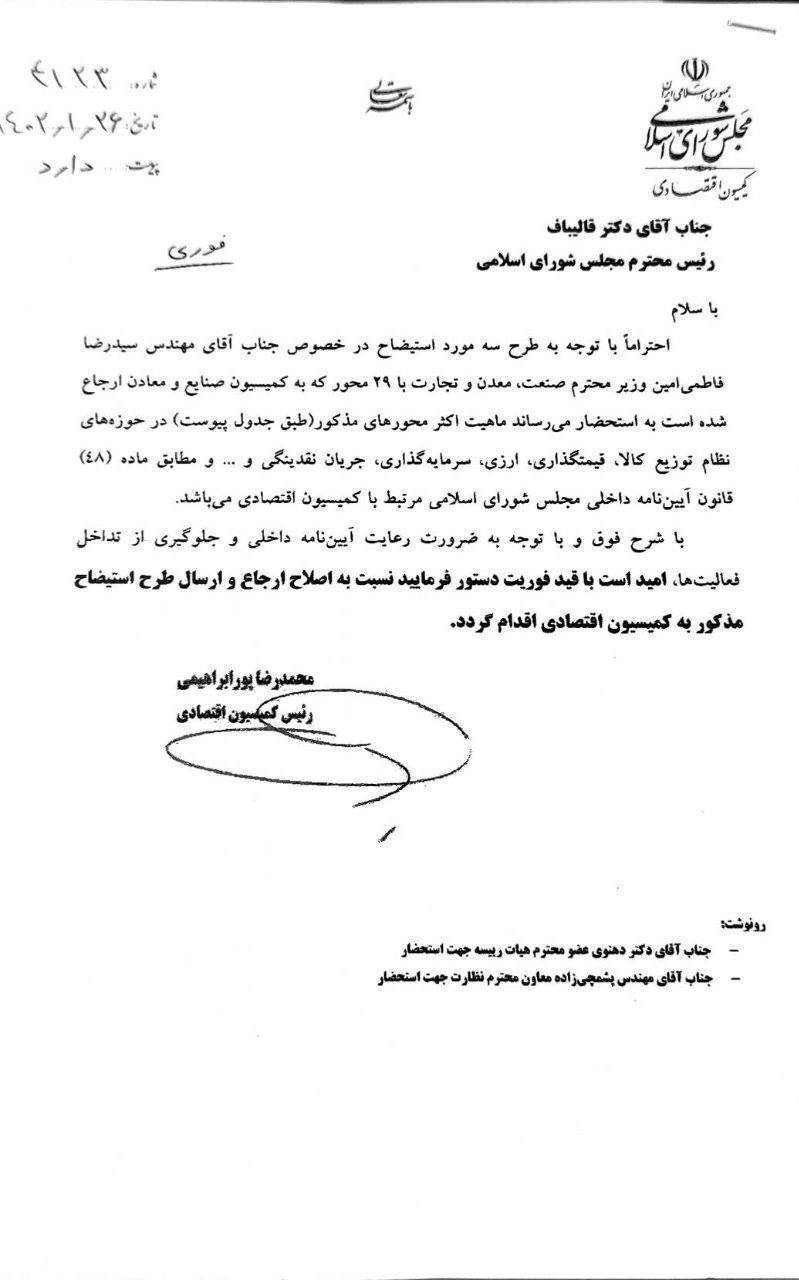 جمهوری اسلامی ایران
مجلس شورای اسلامی
کمیسیون اقتصادی
باسمه تعالی
شماره:
تاریخ: ۱۴۰۲/۱/۲۶
پیوست: ... دارد
فوری
جناب آقای دکتر قالیباف
رئیس محترم مجلس شورای اسلامی
با سلام
احتراماً با توجه به طرح سه مورد استیضاح در خصوص جناب آقای مهندس سیدرضا
فاطمی‌امین وزیر محترم صنعت، معدن و تجارت با ۲۹ محور که به کمیسیون صنایع و معادن ارجاع
شده است به استحضار می‌رساند ماهیت اکثر محورهای مذکور(طبق جدول پیوست) در حوزه‌های
نظام توزیع کالا، قیمتگذاری، ارزی، سرمایه‌گذاری، جریان نقدینگی و ... و مطابق ماده (۴۸)
قانون آیین‌نامه داخلی مجلس شورای اسلامی مرتبط با کمیسیون اقتصادی می‌باشد.
با شرح فوق و با توجه به ضرورت رعایت آیین‌نامه داخلی و جلوگیری از تداخل
فعالیت‌ها، امید است با قید فوریت دستور فرمایید نسبت به اصلاح ارجاع و ارسال طرح استیضاح
مذکور به کمیسیون اقتصادی اقدام گردد.
محمدرضا پورابراهیمی
رئیس کمیسیون اقتصادی
رونوشت:
– جناب آقای دکتر دهنوی عضو محترم هیات رییسه جهت استحضار
– جناب آقای مهندس پشمچی‌زاده معاون محترم نظارت جهت استحضار